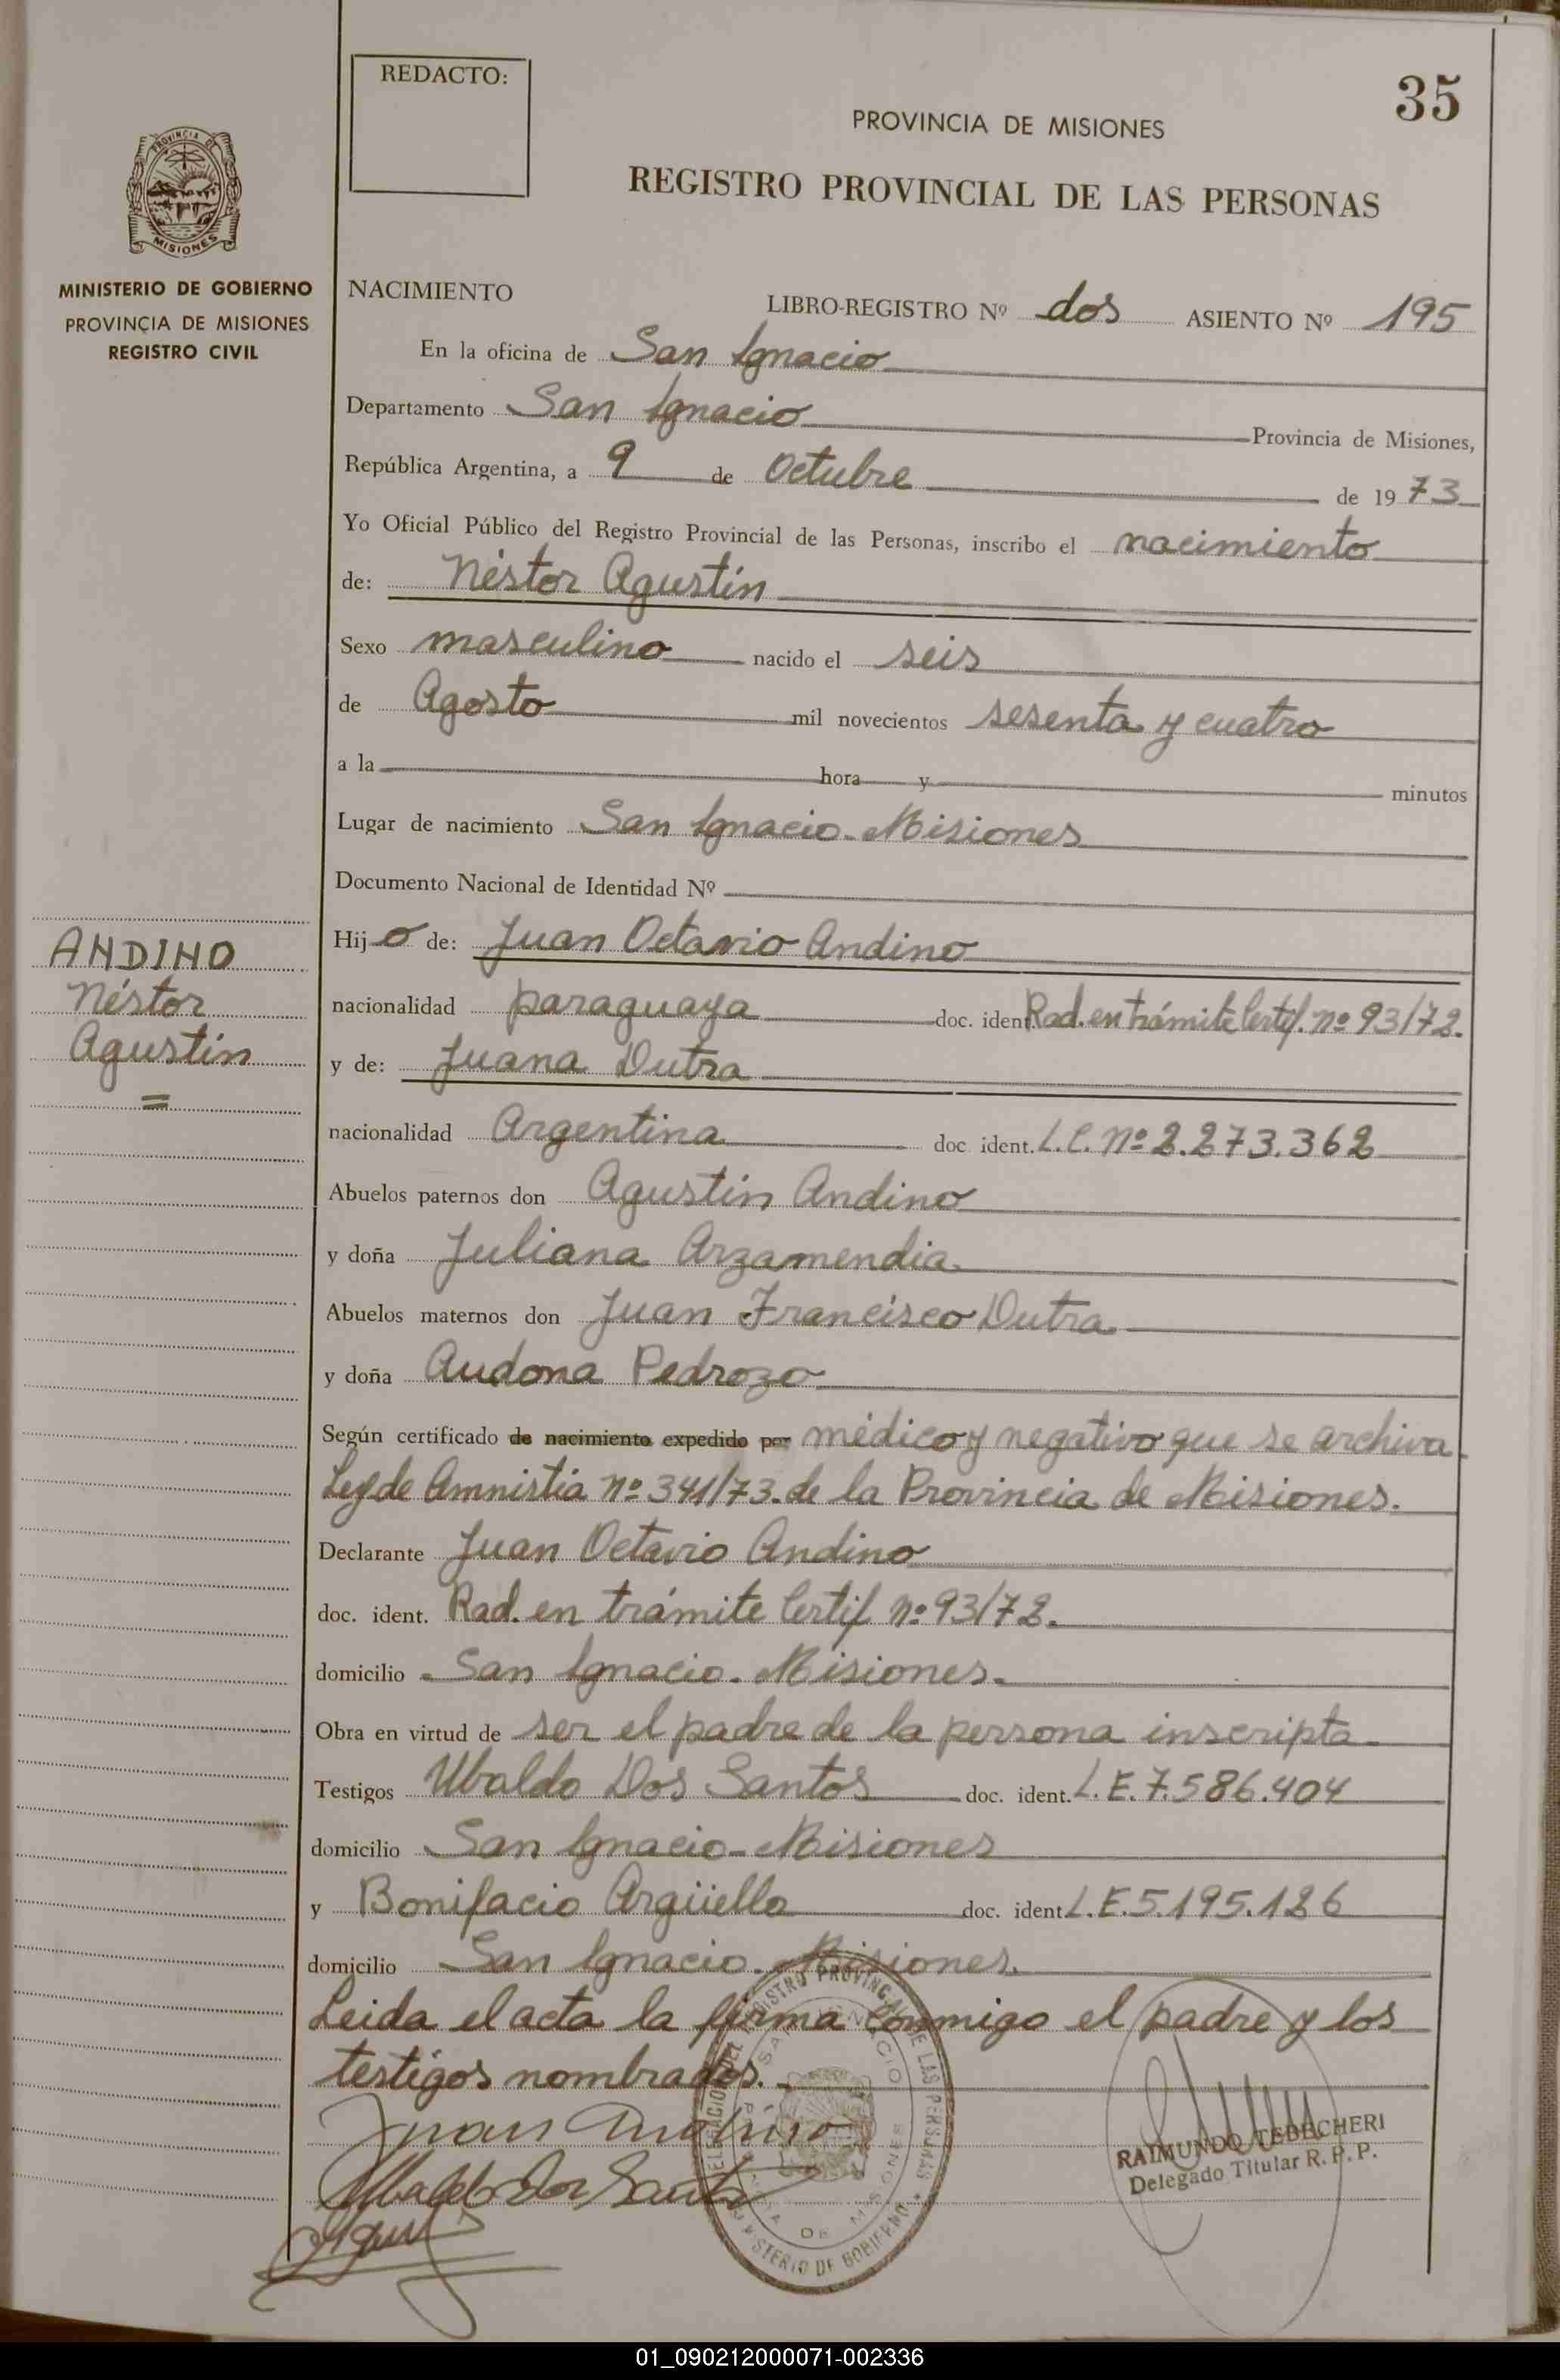 REDACTO:
35
PROVINCIA DE MISIONES
REGISTRO PROVINCIAL DE LAS PERSONAS
PROVINCIA DE
MISIONES
MINISTERIO DE GOBIERNO
PROVINCIA DE MISIONES
REGISTRO CIVIL
NACIMIENTO LIBRO-REGISTRO Nº dos ASIENTO Nº 195
En la oficina de San Ignacio
Departamento San Ignacio Provincia de Misiones,
República Argentina, a 9 de Octubre de 1973
Yo Oficial Público del Registro Provincial de las Personas, inscribo el nacimiento
de: Néstor Agustín
Sexo masculino nacido el seis
de Agosto mil novecientos sesenta y cuatro
a la hora y minutos
Lugar de nacimiento San Ignacio - Misiones
Documento Nacional de Identidad Nº
ANDINO
Néstor
Agustín
=
Hijo de: Juan Octavio Andino
nacionalidad paraguaya doc. ident. Rad. en trámite Certif. nº 93/72.
y de: Juana Dutra
nacionalidad Argentina doc ident. L.C. nº 2.273.362
Abuelos paternos don Agustín Andino
y doña Juliana Arzamendia
Abuelos maternos don Juan Francisco Dutra
y doña Audona Pedrozo
Según certificado de nacimiento expedido por médico y negativo que se archiva.
Ley de Amnistía nº 341/73. de la Provincia de Misiones.
Declarante Juan Octavio Andino
doc. ident. Rad. en trámite Certif nº 93/72.
domicilio San Ignacio. Misiones.
Obra en virtud de ser el padre de la persona inscripta.
Testigos Ubaldo Dos Santos doc. ident. L.E. 7.586.404
domicilio San Ignacio - Misiones
y Bonifacio Argüello doc. ident. L.E. 5.195.126
domicilio San Ignacio. Misiones.
Leida el acta la firma conmigo el padre y los
testigos nombrados.
Juan Andino
Ubaldo Dos Santos
DELEGACION DEL REGISTRO PROVINCIAL DE LAS PERSONAS
MINISTERIO DE GOBIERNO
SAN IGNACIO
PROVINCIA DE MISIONES
RAIMUNDO TEDECHERI
Delegado Titular R. P. P.
01_090212000071-002336